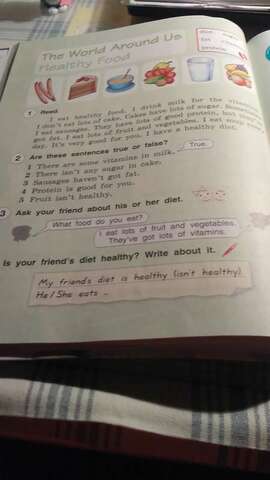 The World Around Us
Healthy Food
diet
fat
protein
1 Read.
I eat healthy food. I drink milk for the
I don't eat lots of cake. Cakes have lots of sugar.
I eat sausages. They have lots of good protein, but
got fat. I eat lots of fruit and vegetables. I eat
day. It's very good for you. I have a healthy diet.
2 Are these sentences true or false?
True.
1 There are some vitamins in milk.
2 There isn't any sugar in cake.
3 Sausages haven't got fat.
4 Protein is good for you.
5 Fruit isn't healthy.
3 Ask your friend about his or her diet.
What food do you eat?
I eat lots of fruit and vegetables.
They've got lots of vitamins.
Is your friend's diet healthy? Write about it.
My friend's diet is healthy (isn't healthy).
He/She eats ...